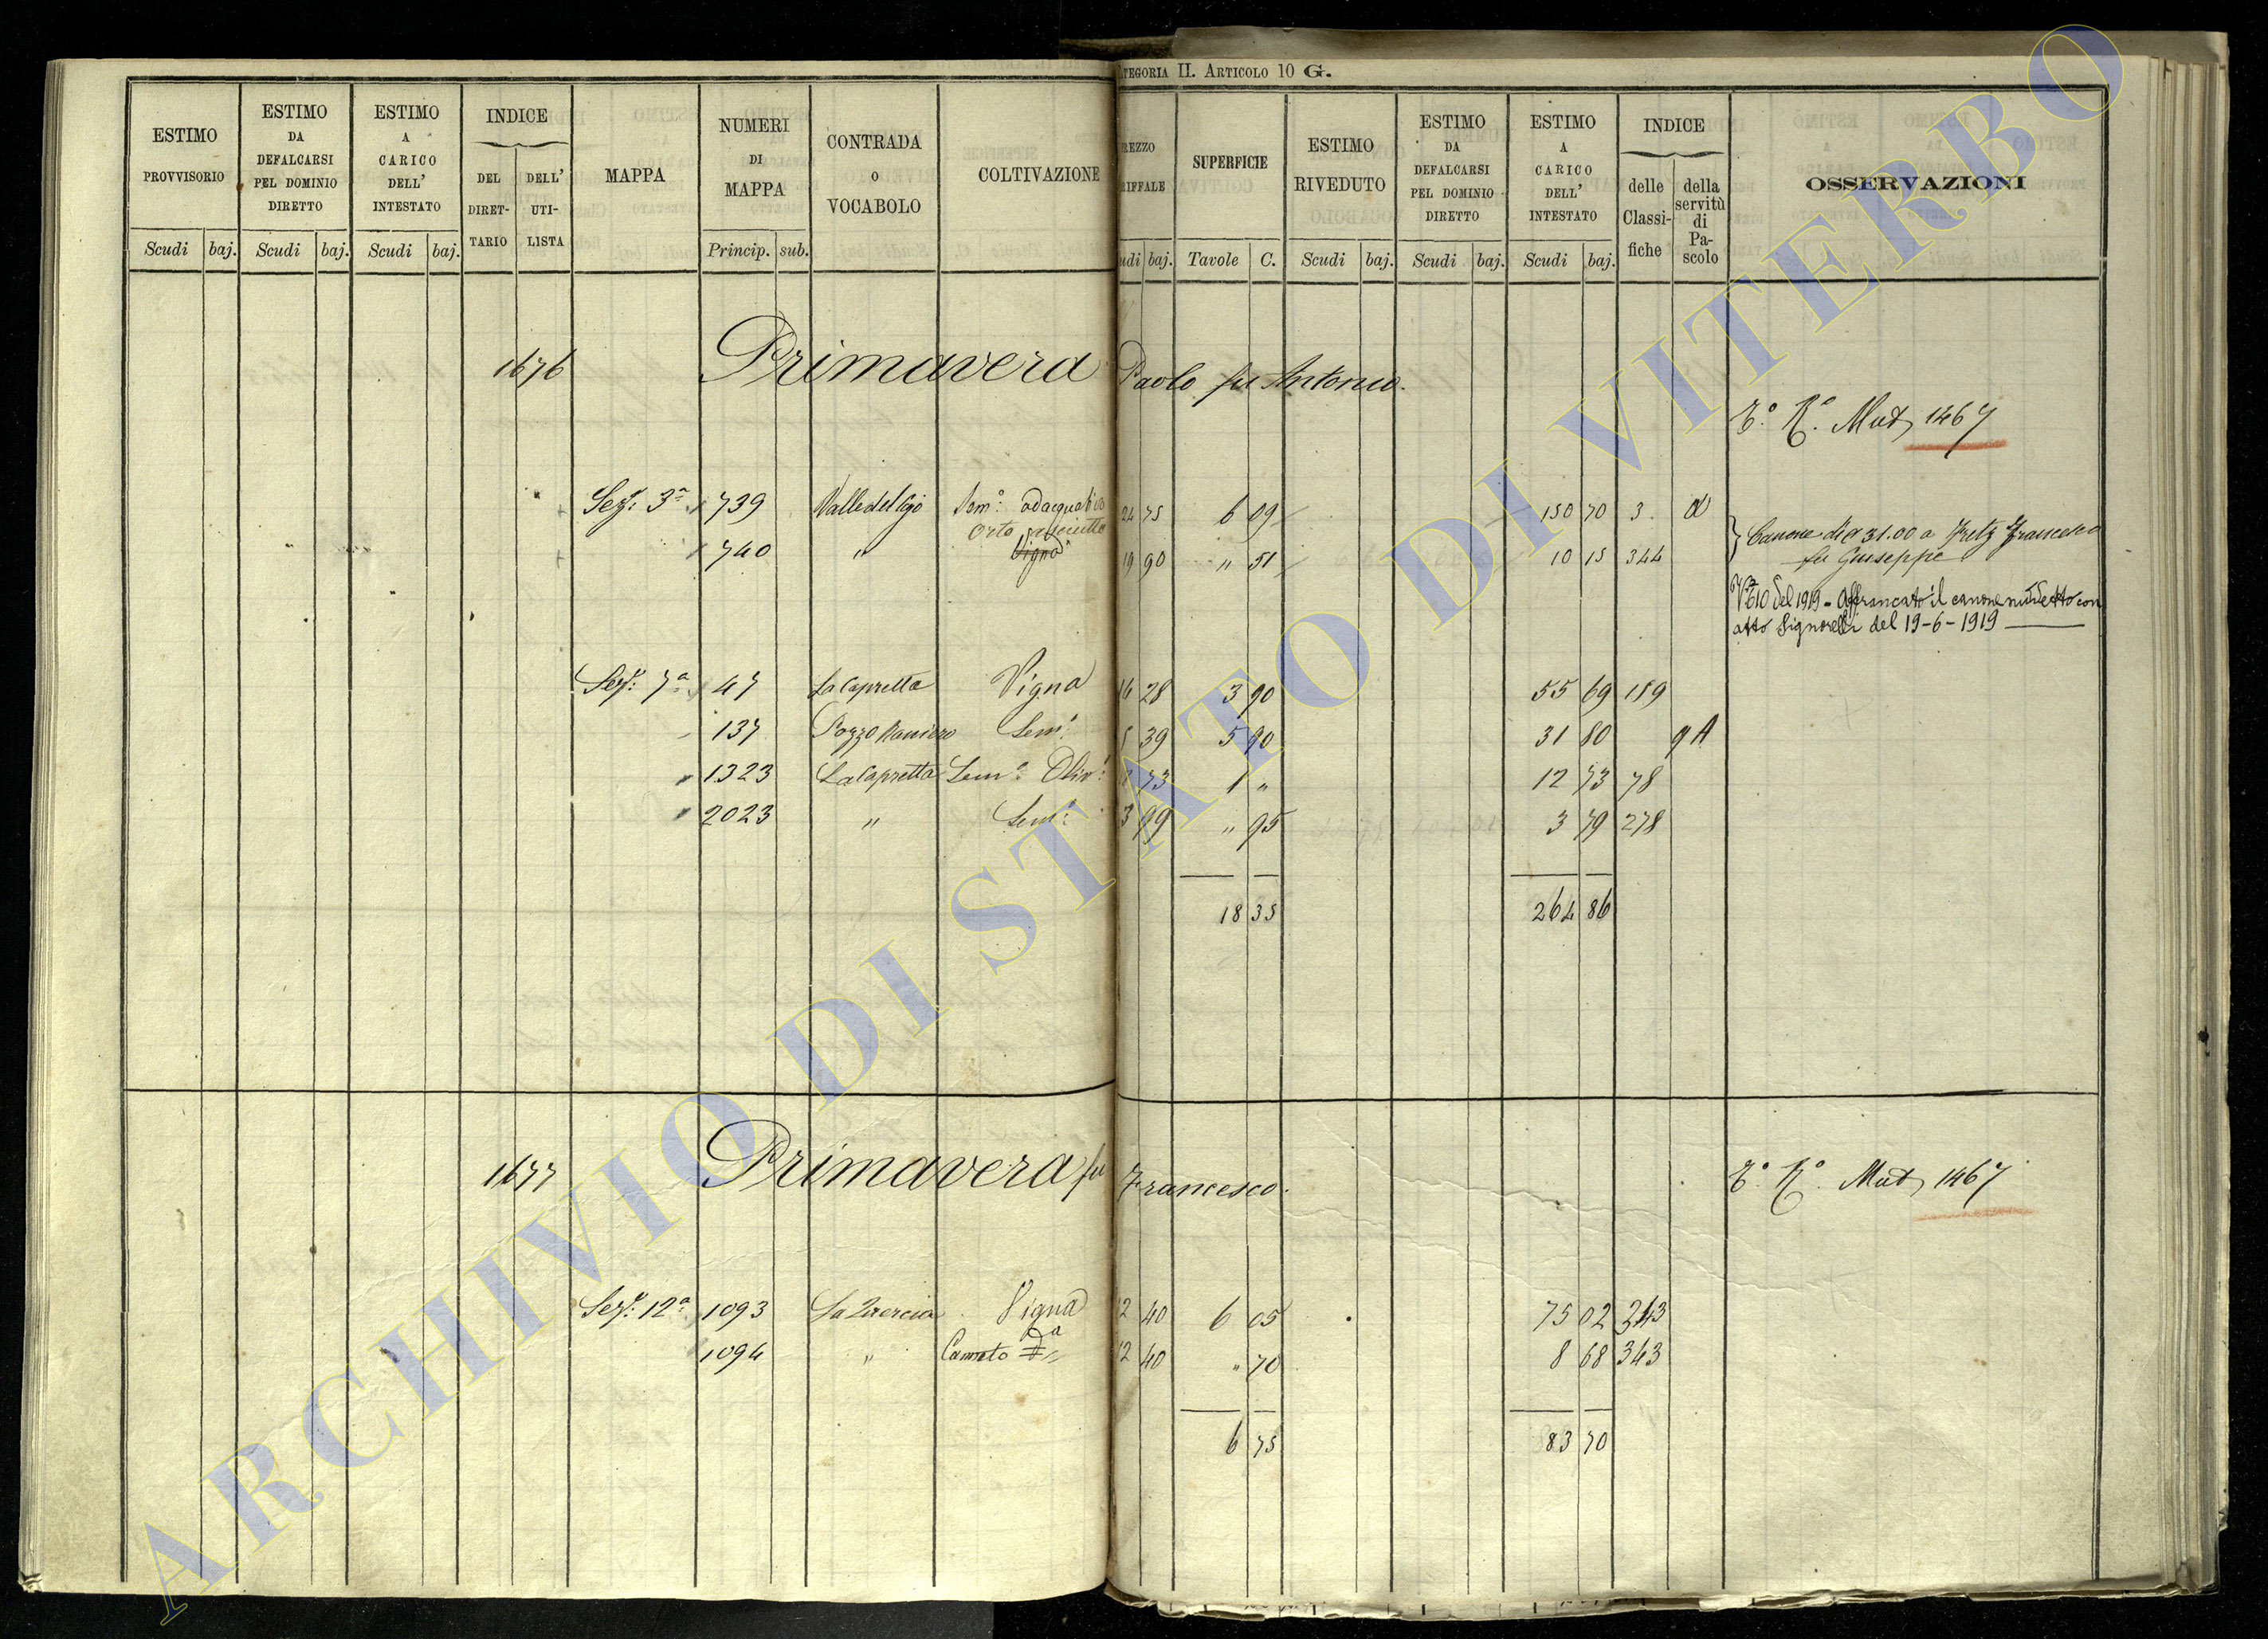 ATEGORIA II. ARTICOLO 10 G.
ESTIMO PROVVISORIO
ESTIMO DA DEFALCARSI PEL DOMINIO DIRETTO
ESTIMO A CARICO DELL' INTESTATO
INDICE
DEL DIRET-TARIO
DELL' UTI-LISTA
MAPPA
NUMERI DI MAPPA
CONTRADA O VOCABOLO
COLTIVAZIONE
REZZO RIFFALE
SUPERFICIE
ESTIMO RIVEDUTO
ESTIMO DA DEFALCARSI PEL DOMINIO DIRETTO
ESTIMO A CARICO DELL' INTESTATO
INDICE
delle Classi-fiche
della servitù di Pa-scolo
OSSERVAZIONI
Scudi baj. Scudi baj. Scudi baj. Princip. sub. udi baj. Tavole C. Scudi baj. Scudi baj. Scudi baj.
1676 Primavera Paolo fu Antonio.
T.° R.° Mut. 1467
Sez.e 3a 739 Valle del Ajo Sem.o adacquativo 24 75 6 09 150 70 3
Orto asciutto
740 " Vigna 19 90 " 51 10 15 344
Canone di 31.00 a Fretz Francesco
fu Giuseppe
del 1919 - Affrancato il canone con
atto Signorelli del 19-6-1919
Sez.e 7a 47 La Capretta Vigna 14 28 3 90 55 69 189
137 Pozzo Raniero Sem.o 5 39 5 90 31 80 9 A
1323 La Capretta Sem.o Oliv.o 73 1 " 12 73 78
2023 " Sem.o 3 99 " 95 3 79 278
18 35 264 86
1677 Primavera fu Francesco.
T.° R.° Mut. 1467
Sez.e 12a 1093 La Quercia Vigna 12 40 6 05 75 02 343
1094 " Canneto 12 40 " 70 8 68 343
6 75 83 70
ARCHIVIO DI STATO DI VITERBO